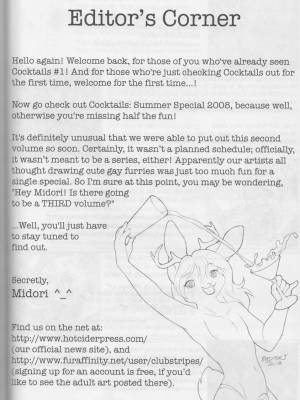 Editor's Corner
Hello again! Welcome back, for those of you who've already seen
Cocktails #1! And for those who're just checking Cocktails out for
the first time, welcome for the first time...!
Now go check out Cocktails: Summer Special 2008, because well,
otherwise you're missing half the fun!
It's definitely unusual that we were able to put out this second
volume so soon. Certainly, it wasn't a planned schedule; officially,
it wasn't meant to be a series, either! Apparently our artists all
thought drawing cute gay furries was just too much fun for a
single special. So I'm sure at this point, you may be wondering,
"Hey Midori! Is there going
to be a THIRD volume?"
...Well, you'll just have
to stay tuned to
find out.
Secretly,
Midori ^_^
Find us on the net at:
http://www.hotciderpress.com/
(our official news site), and
http://www.furaffinity.net/user/clubstripes/
(signing up for an account is free, if you'd
like to see the adult art posted there).